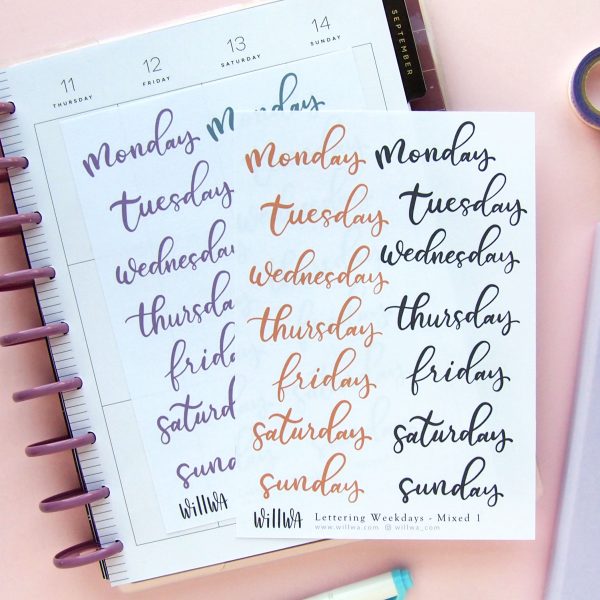 11 12 13 14
THURSDAY FRIDAY SATURDAY SUNDAY
SEPTEMBER
monday monday
tuesday
wednesday
thursda
frid
saturd
sund
WillWA
monday monday
tuesday tuesday
wednesday wednesday
thursday thursday
friday friday
saturday saturday
sunday sunday
WillWA Lettering Weekdays - Mixed 1
www.willwa.com willwa_com